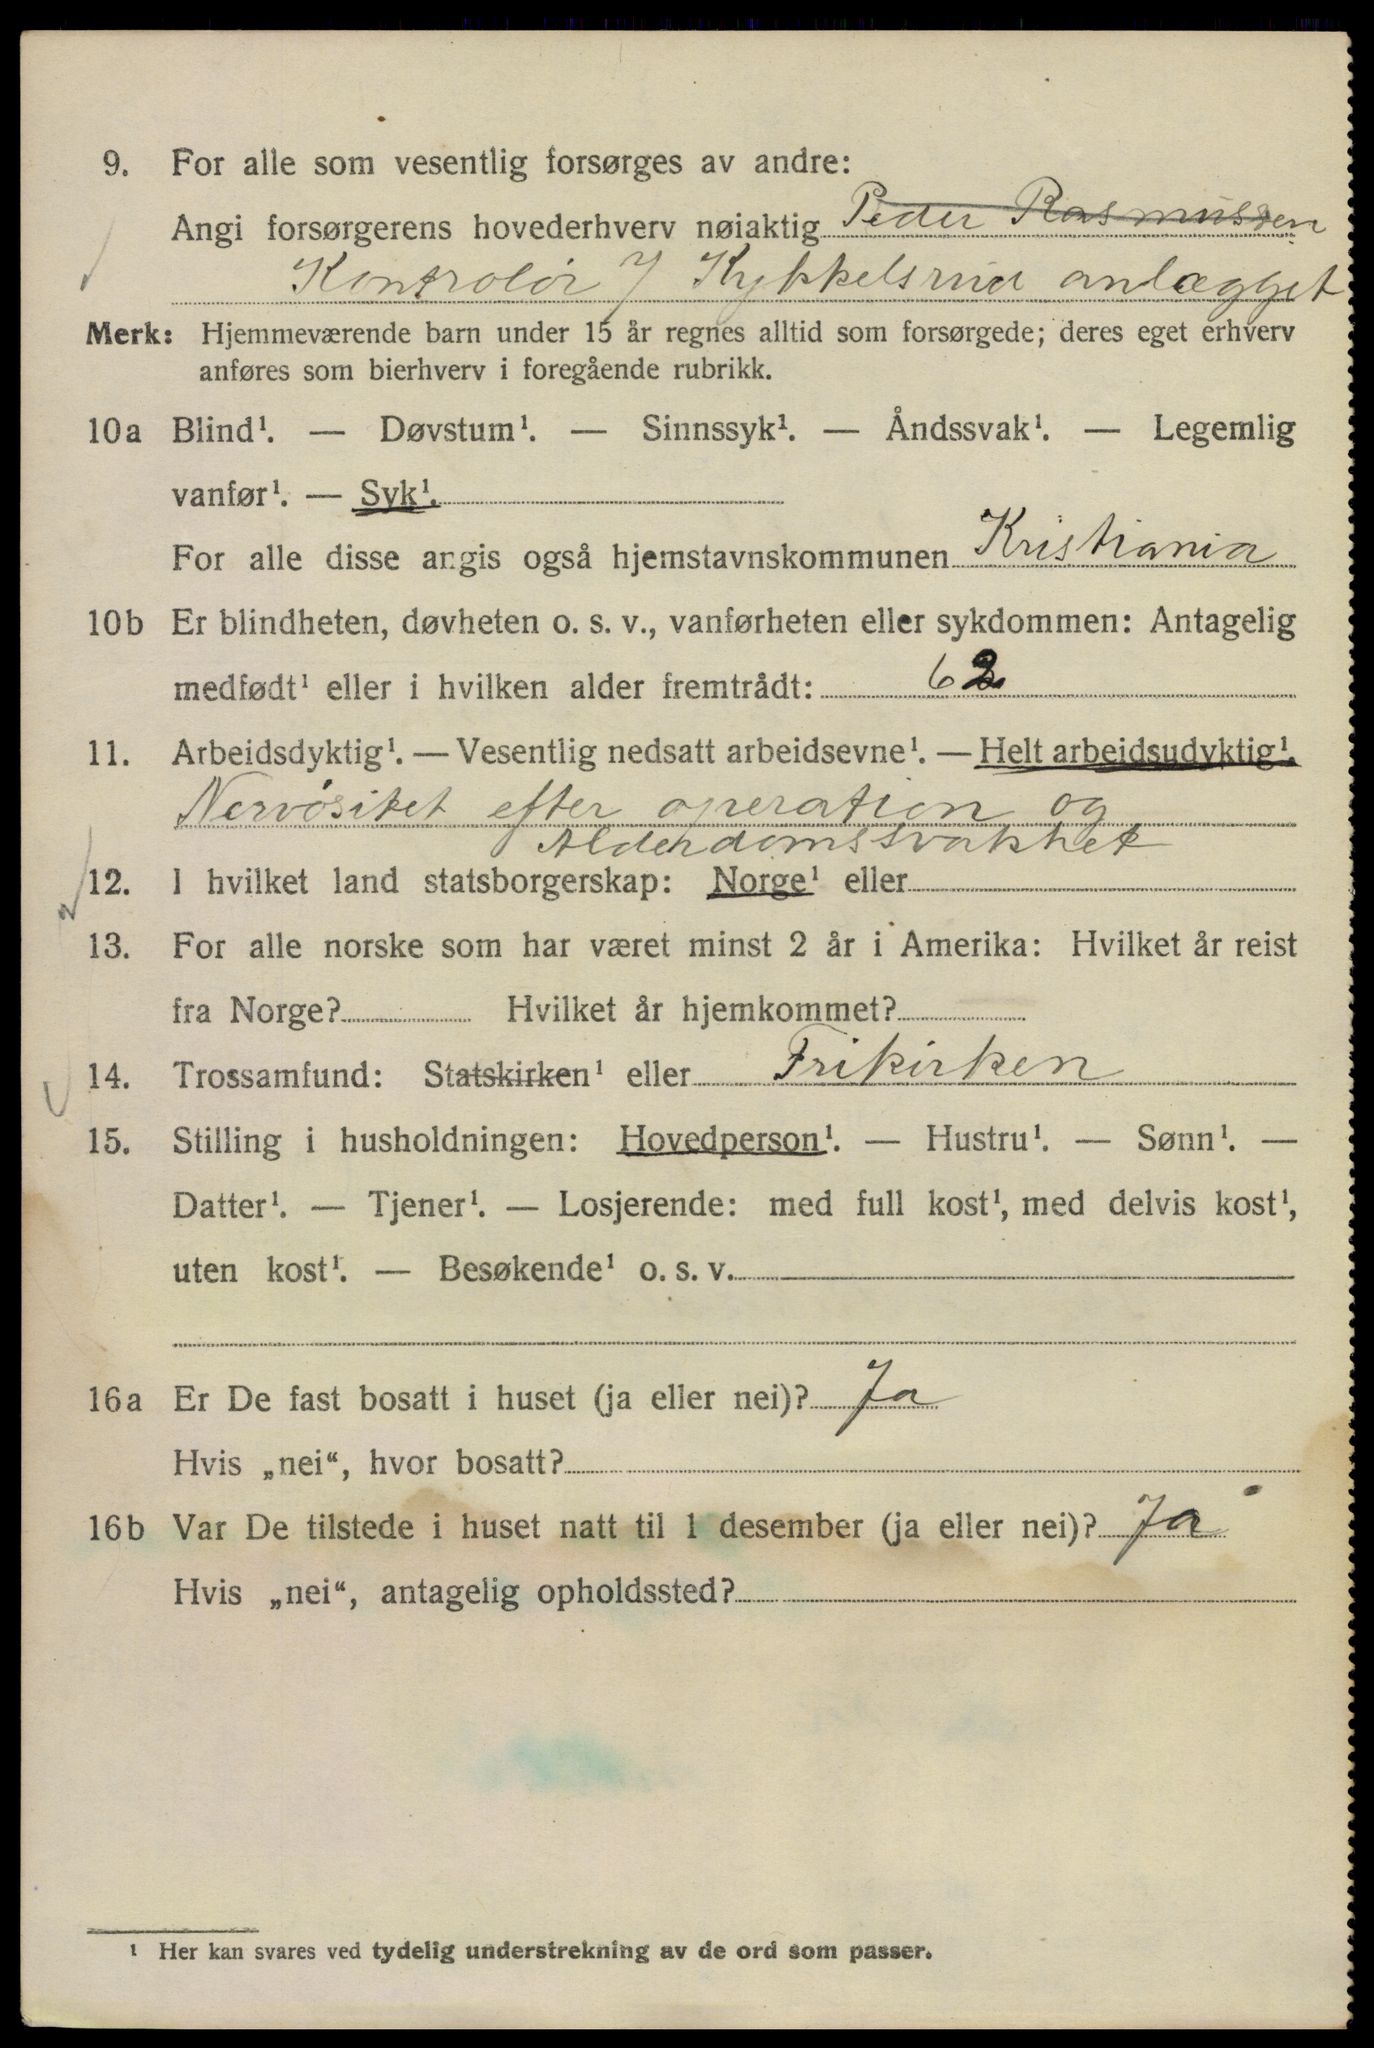 9. For alle som vesentlig forsørges av andre:
Angi forsørgerens hovederhverv nøiaktig Peder Rasmussen
Kontrolör I Kykkelsrud anlægget
Merk: Hjemmeværende barn under 15 år regnes alltid som forsørgede; deres eget erhverv
anføres som bierhverv i foregående rubrikk.
10a Blind¹. — Døvstum¹. — Sinnssyk¹. — Åndssvak¹. — Legemlig
vanfør¹. — Syk¹.
For alle disse angis også hjemstavnskommunen Kristiania
10b Er blindheten, døvheten o. s. v., vanførheten eller sykdommen: Antagelig
medfødt¹ eller i hvilken alder fremtrådt: 62
11. Arbeidsdyktig¹. — Vesentlig nedsatt arbeidsevne¹. — Helt arbeidsudyktig¹.
Nervösitet efter operation og
Alderdomssvakhet
12. I hvilket land statsborgerskap: Norge¹ eller
13. For alle norske som har været minst 2 år i Amerika: Hvilket år reist
fra Norge? Hvilket år hjemkommet?
14. Trossamfund: Statskirken¹ eller Frikirken
15. Stilling i husholdningen: Hovedperson¹. — Hustru¹. — Sønn¹. —
Datter¹. — Tjener¹. — Losjerende: med full kost¹, med delvis kost¹,
uten kost¹. — Besøkende¹ o. s. v.
16a Er De fast bosatt i huset (ja eller nei)? Ja
Hvis „nei“, hvor bosatt?
16b Var De tilstede i huset natt til 1 desember (ja eller nei)? Ja
Hvis „nei“, antagelig opholdssted?
¹ Her kan svares ved tydelig understrekning av de ord som passer.